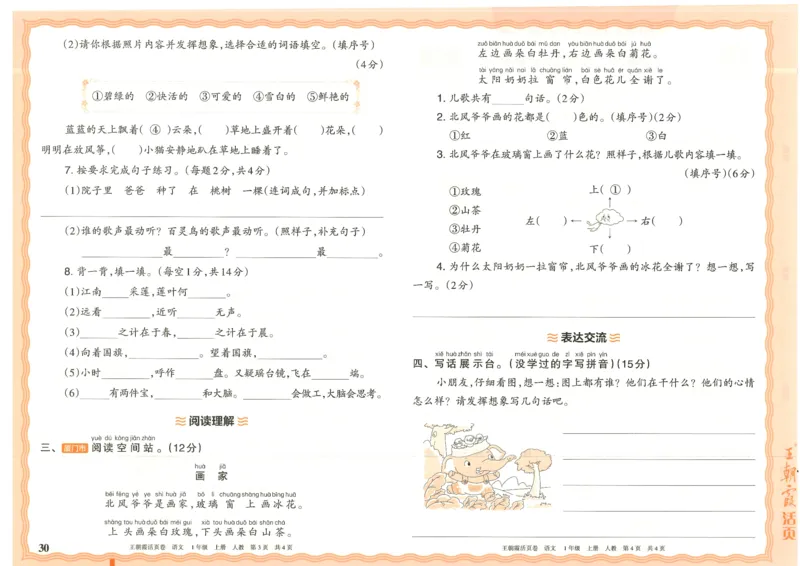 (2)请你根据照片内容并发挥想象,选择合适的词语填空。(填序号)
(4分)
①碧绿的 ②快活的 ③可爱的 ④雪白的 ⑤鲜艳的
蓝蓝的天上飘着( ④ )云朵,( )草地上盛开着( )花朵,( )
明明在放风筝,( )小猫安静地趴在草地上睡着了。
7. 按要求完成句子练习。(每题2分,共4分)
(1)院子里 爸爸 种了 在 桃树 一棵(连词成句,并加标点)
(2)谁的歌声最动听? 百灵鸟的歌声最动听。(照样子,补充句子)
____最____? ____最____。
8. 背一背,填一填。(每空1分,共14分)
(1)江南____采莲,莲叶何____。
(2)远看____,近听____无声。
(3)____之计在于春,____之计在于晨。
(4)向着国旗,____。望着国旗,____。
(5)小时____,呼作____盘。又疑瑶台镜,飞在____端。
(6)____有两件宝,____和大脑。____会做工,大脑会思考。
阅读理解
yuè dú kōng jiān zhàn
三、厦门市 阅读空间站。(12分)
huà jiā
画 家
běi fēng yé ye shì huà jiā bō li chuāng shàng huà bīng huā
北风爷爷是画家,玻璃窗上画冰花。
shàng tou huà duǒ bái méi gui xià tou huà duǒ bái shān chá
上头画朵白玫瑰,下头画朵白山茶。
30
王朝霞活页卷 语文 1年级 上册 人教 第3页 共4页
zuǒ biān huà duǒ bái mǔ dan yòu biān huà duǒ bái jú huā
左边画朵白牡丹,右边画朵白菊花。
tài yáng nǎi nai lā chuāng lián bái sè huā ér quán xiè le
太阳奶奶拉窗帘,白色花儿全谢了。
1. 儿歌共有____句话。(2分)
2. 北风爷爷画的花都是( )色的。(填序号)(2分)
①红 ②蓝 ③白
3. 北风爷爷在玻璃窗上画了什么花? 照样子,根据儿歌内容填一填。
(填序号)(6分)
①玫瑰 上( ① )
②山茶
③牡丹 左( ) ← → 右( )
④菊花 下( )
4. 为什么太阳奶奶一拉窗帘,北风爷爷画的冰花全谢了? 想一想,写
一写。(2分)
表达交流
xiě huà zhǎn shì tái méi xué guo de zì xiě pīn yīn
四、写话展示台。(没学过的字写拼音)(15分)
小朋友,仔细看图,想一想:图上都有谁? 他们在干什么? 他们的心情
怎么样? 请发挥想象写几句话吧。
王朝霞活页
王朝霞活页卷 语文 1年级 上册 人教 第4页 共4页